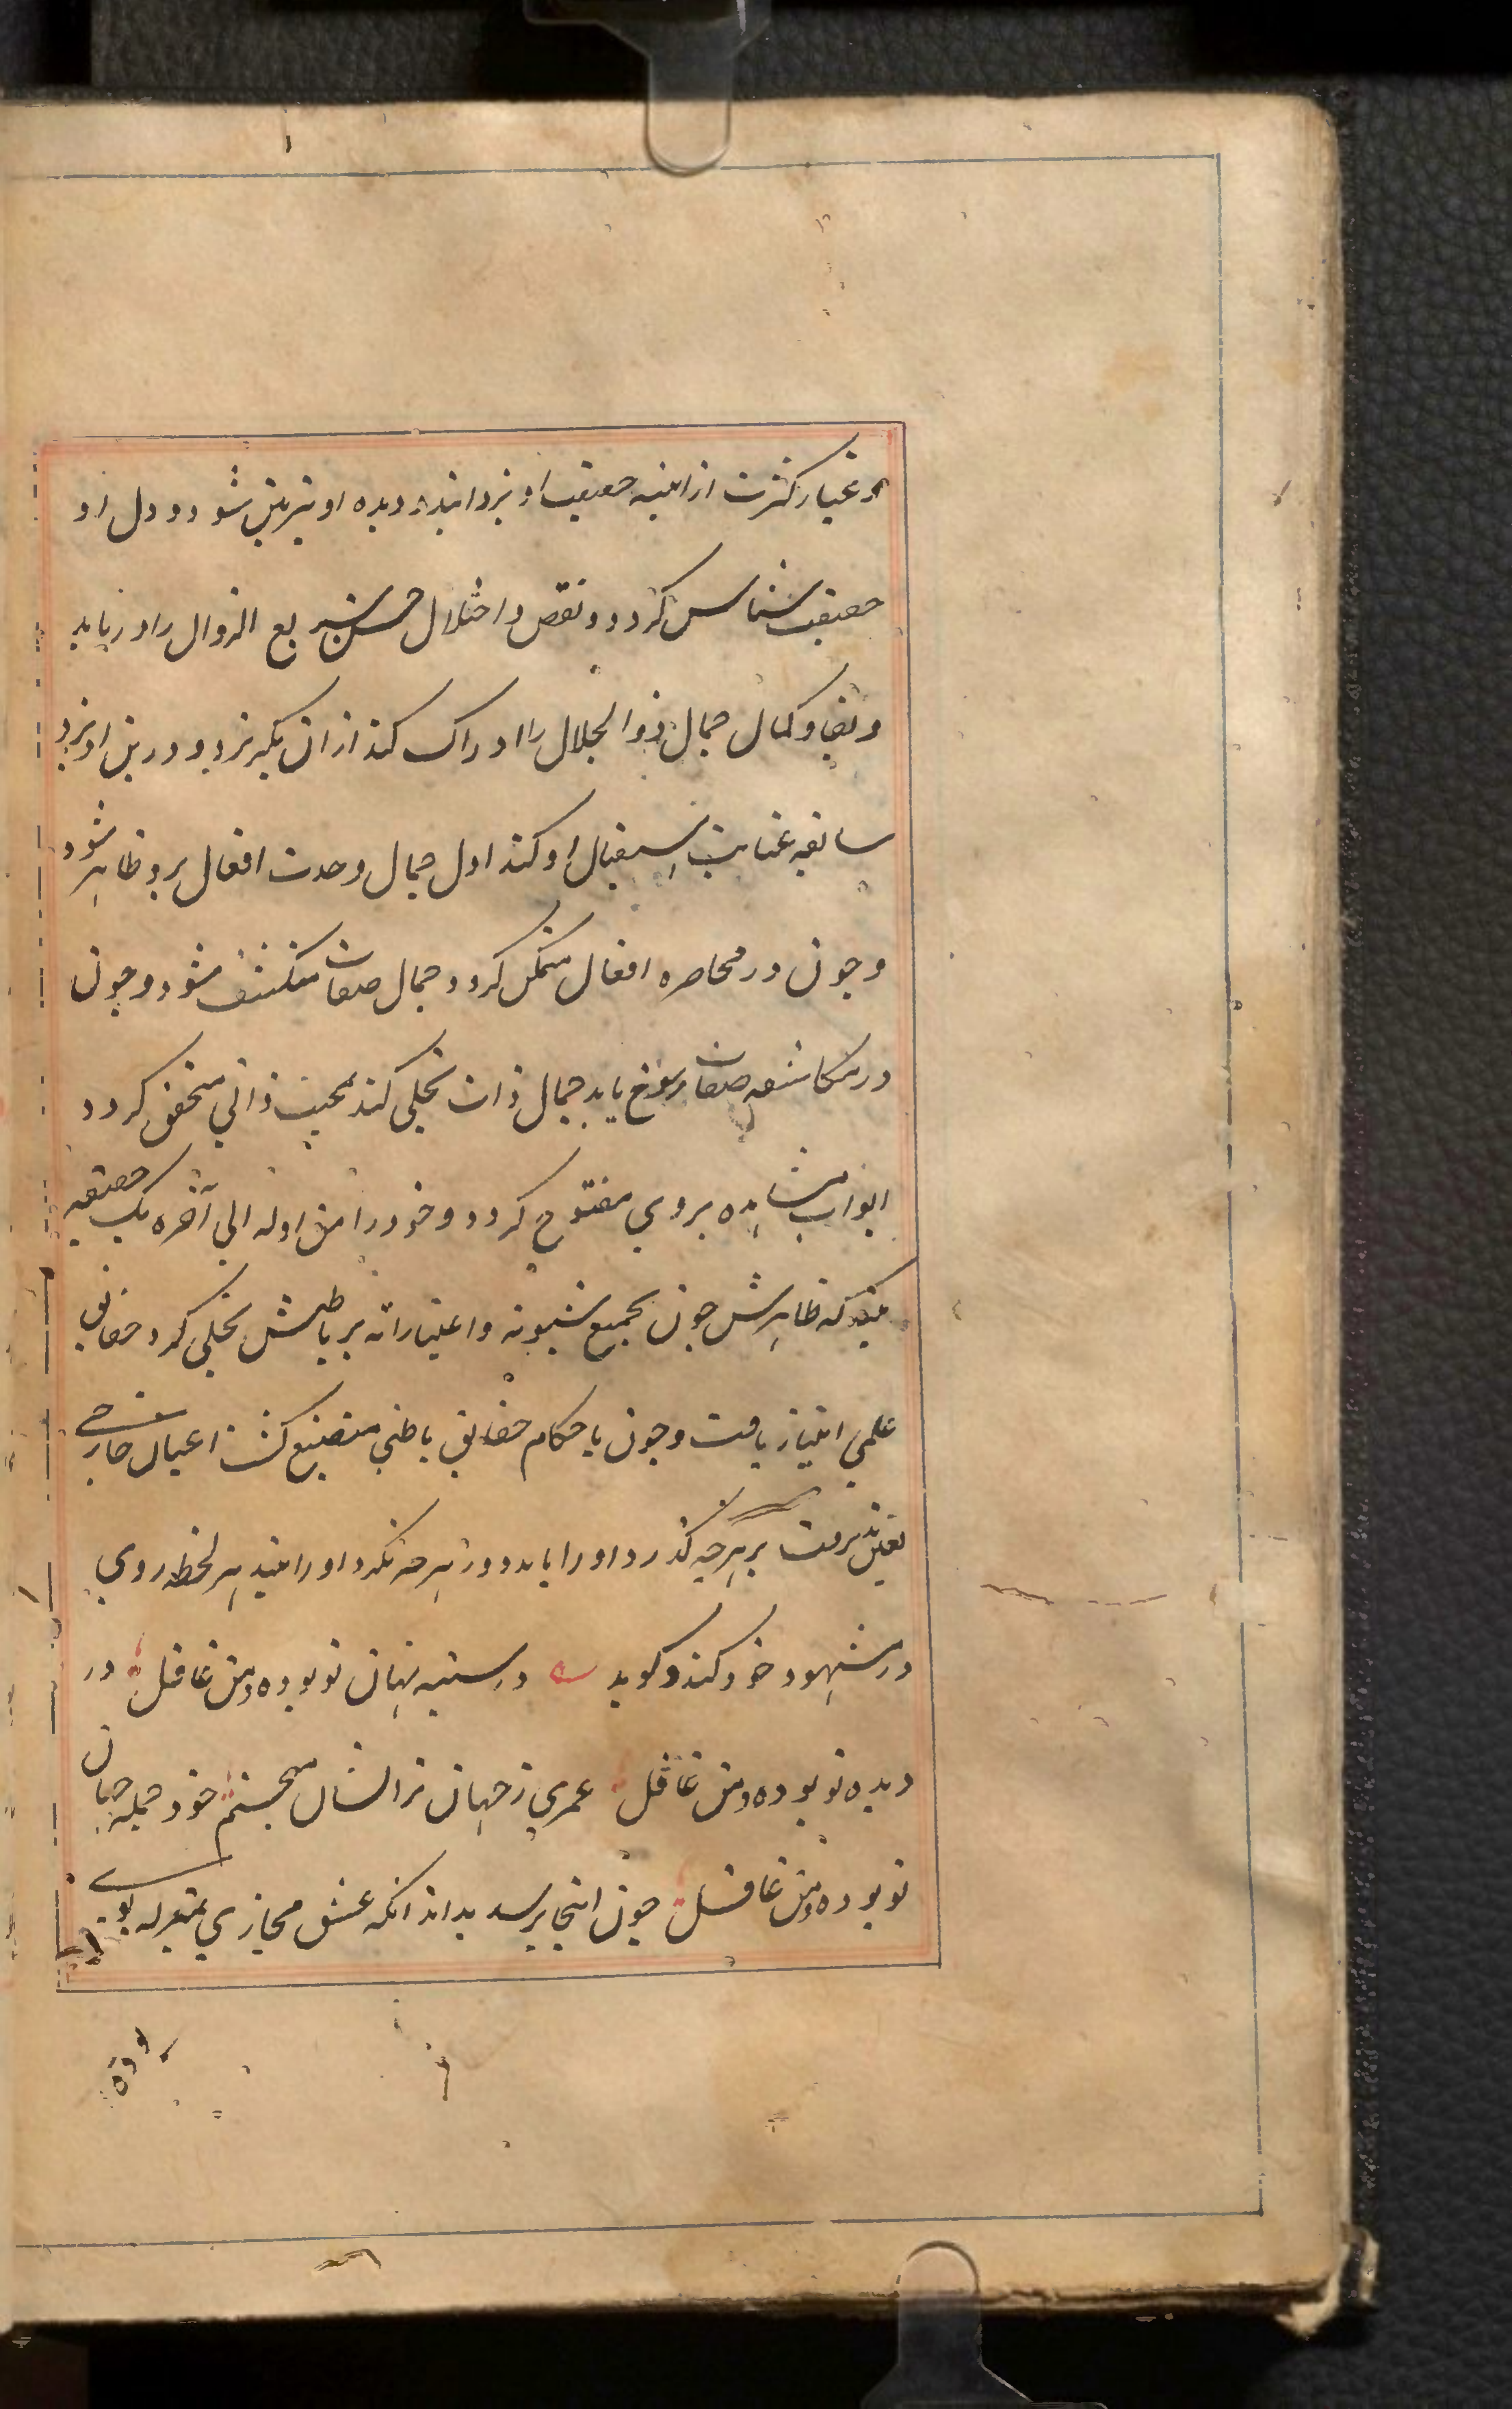 و غبار کثرت از اینه حقیقت او بزدایند دیده او تیزبین شود و دل او
حقیقت شناس کردد و نقص و اختلال حسن سریع الزوال را دریابد
و بقا و کمال جمال ذوالجلال را ادراک کند از ان بگریزد و درین اویزد
سابقه عنایت استقبال او کند اول جمال وحدت افعال برو ظاهر شود
و چون در محاضره افعال متمکن کردد جمال صفات منکشف شود و چون
در مکاشفه صفات رسوخ یابد جمال ذات تجلی کند بمحبت ذاتی متحقق کردد
ابواب مشاهده بروی مفتوح کردد وجود را من اوله الی آخره یک حقیقت
بیند که ظاهرش چون بجمیع شیونه و اعتباراته بر باطنش تجلی کرد حقایق
علمی امتیاز یافت و چون باحکام حقایق باطنی منصبغ کشت اعیان خارجی
تعین پذیرفت بر هرچه کذرد او را یابد و در هرچه نکرد او را بیند هر لحظه روی
در مشهود خود کند و کوید در سینه نهان تو بوده من غافل در
دیده تو بوده من غافل عمری ز جهان ترا نشان میجستم خود جمله جهان
تو بوده من غافل چون اینجا برسد بداند که عشق مجازی بمنزله بویی